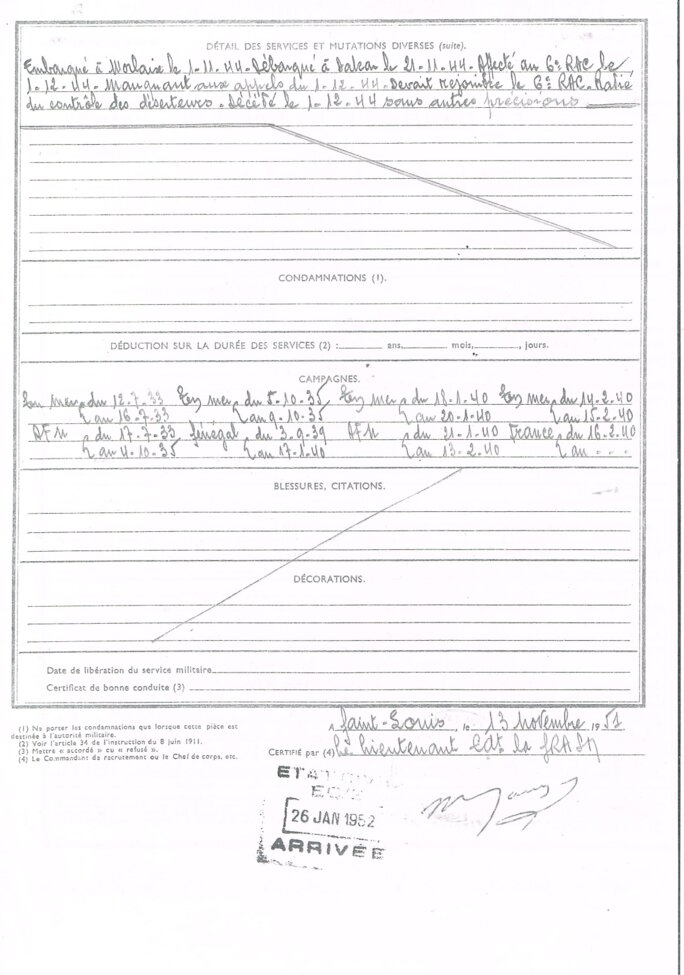 DÉTAIL DES SERVICES ET MUTATIONS DIVERSES (suite).
Embarqué à Morlaix le 1-11-44 - Débarqué à Dakar le 21-11-44 - Affecté au 6e RAC le
1-12-44 - Manquant aux appels du 1-12-44 - Devait rejoindre le 6e RAC - Radié
du contrôle des déserteurs - Décédé le 1-12-44 sans autres précisions
CONDAMNATIONS (1).
DÉDUCTION SUR LA DURÉE DES SERVICES (2) : ans, mois, , jours.
CAMPAGNES.
En mer, du 12.7.33 En mer, du 5-10-35 En mer, du 18-1-40 En mer, du 14-2-40
au 16-7-33 au 9-10-35 au 20-1-40 au 15-2-40
du 17-7-33 Sénégal, du 3-9-39 du 21-1-40 France, du 16-2-40
au 4-10-35 au 17-1-40 au 13-2-40 au - - -
BLESSURES, CITATIONS.
DÉCORATIONS.
Date de libération du service militaire
Certificat de bonne conduite (3)
(1) Ne porter les condamnations que lorsque cette pièce est
destinée à l'autorité militaire.
(2) Voir l'article 34 de l'instruction du 8 juin 1911.
(3) Mettre « accordé » ou « refusé ».
(4) Le Commandant de recrutement ou le Chef de corps, etc.
A Saint-Louis, le 13 novembre 1951
CERTIFIÉ par (4) Le Lieutenant Cdt la
ETAT
26 JAN 1952
ARRIVÉE